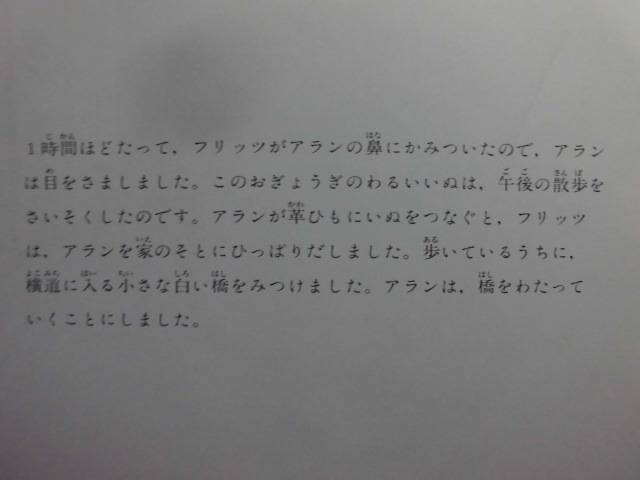 1時間ほどたって，フリッツがアランの鼻にかみついたので，アラン
は目をさましました。このおぎょうぎのわるいいぬは，午後の散歩を
さいそくしたのです。アランが革ひもにいぬをつなぐと，フリッツ
は，アランを家のそとにひっぱりだしました。歩いているうちに，
横道に入る小さな白い橋をみつけました。アランは，橋をわたって
いくことにしました。